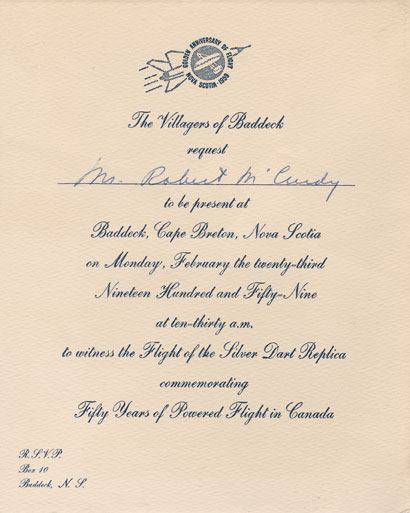 GOLDEN ANNIVERSARY OF FLIGHT
NOVA SCOTIA - 1959
The Villagers of Baddeck
request
Mr. Robert McCurdy
to be present at
Baddeck, Cape Breton, Nova Scotia
on Monday, February the twenty-third
Nineteen Hundred and Fifty-Nine
at ten-thirty a.m.
to witness the Flight of the Silver Dart Replica
commemorating
Fifty Years of Powered Flight in Canada
R.S.V.P.
Box 10
Baddeck, N. S.